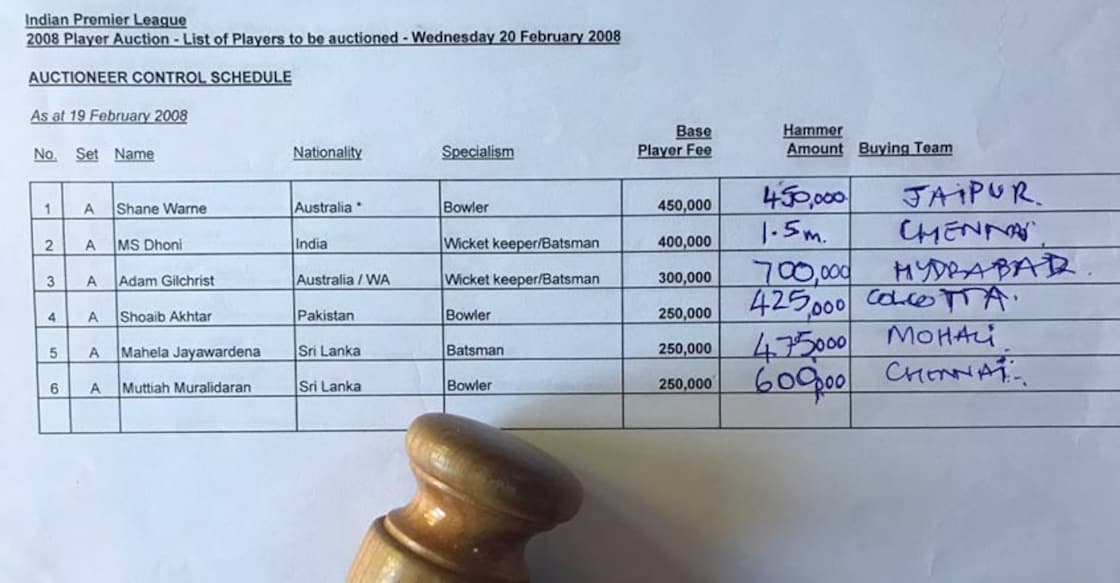 Indian Premier League
2008 Player Auction - List of Players to be auctioned - Wednesday 20 February 2008
AUCTIONEER CONTROL SCHEDULE
As at 19 February 2008
No. Set Name Nationality Specialism Base Player Fee Hammer Amount Buying Team
1 A Shane Warne Australia * Bowler 450,000 450,000 JAIPUR.
2 A MS Dhoni India Wicket keeper/Batsman 400,000 1.5m. CHENNAI.
3 A Adam Gilchrist Australia / WA Wicket keeper/Batsman 300,000 700,000 HYDRABAD.
4 A Shoaib Akhtar Pakistan Bowler 250,000 425,000 COLCOTTA.
5 A Mahela Jayawardena Sri Lanka Batsman 250,000 475000 MOHALI.
6 A Muttiah Muralidaran Sri Lanka Bowler 250,000 600,000 CHENNAI.